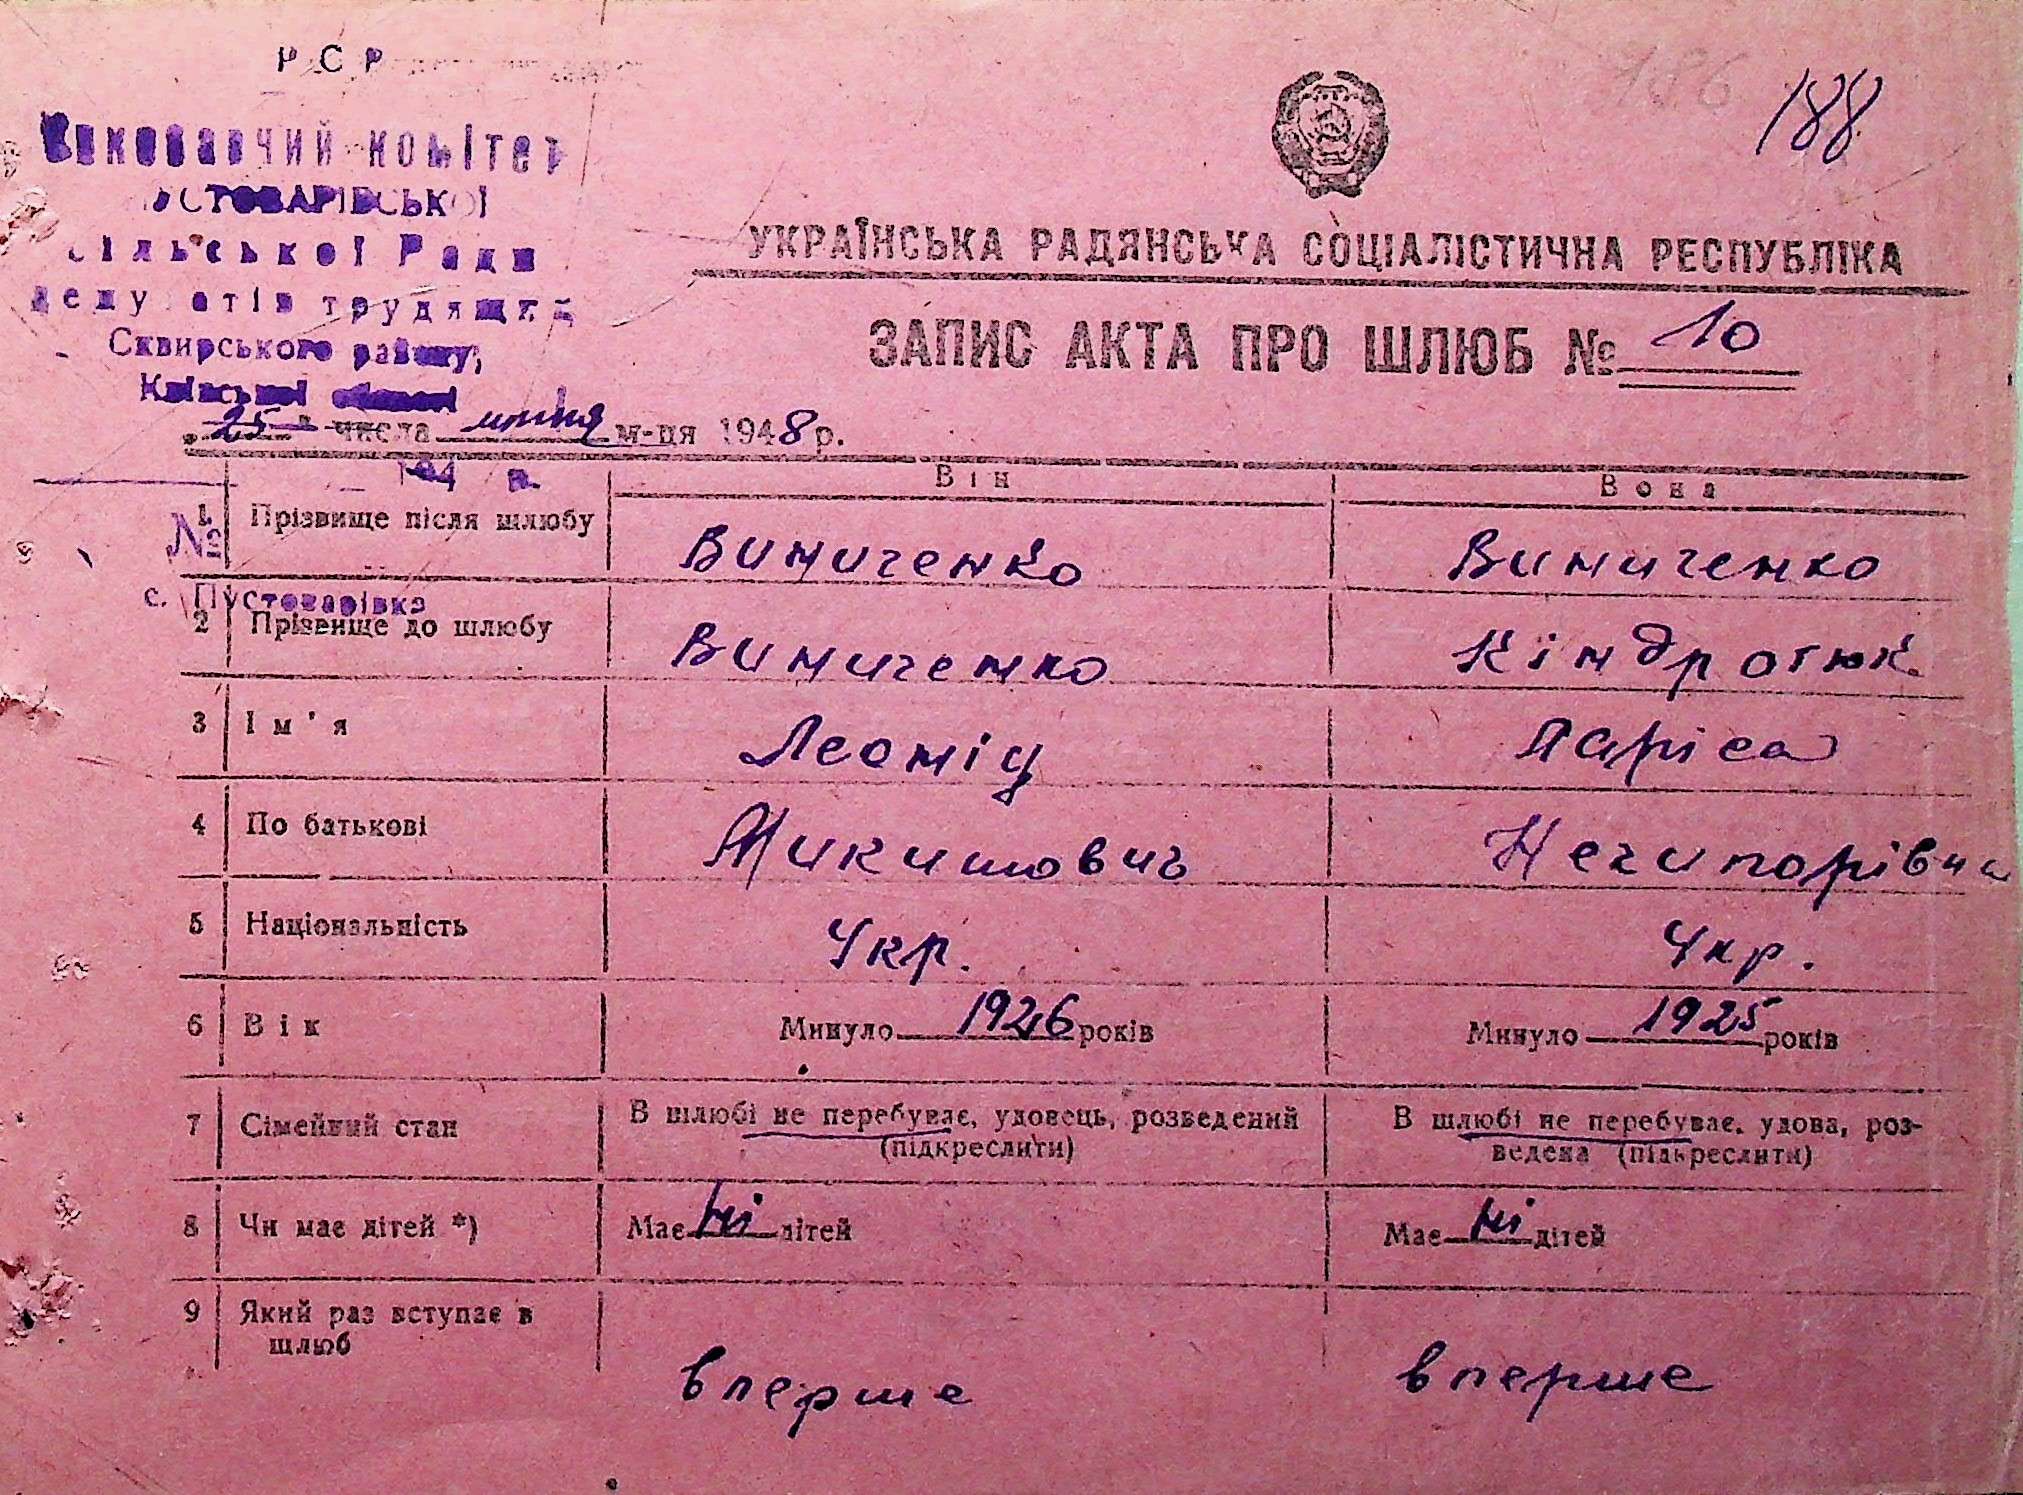 Р С Р
186
188
Виконавчий комітет
ПУСТОВАРІВСЬКОЇ
Сільської Ради
депутатів трудящих
Сквирського району,
Київської області
УКРАЇНСЬКА РАДЯНСЬКА СОЦІАЛІСТИЧНА РЕСПУБЛІКА
ЗАПИС АКТА ПРО ШЛЮБ № 10
„25" числа м-ця 1948 р.
194 р.
№
с. Пустоварівка
Він Вона
1. Прізвище після шлюбу Виниченко Виниченко
2 Прізвище до шлюбу Виниченко Кіндротюк
3 Ім'я Леонід Ларіса
4 По батькові Микитович Нечипорівна
5 Національність Укр. Укр.
6 Вік Минуло 1926 років Минуло 1925 років
7 Сімейний стан В шлюбі не перебуває, удовець, розведений (підкреслити) В шлюбі не перебуває, удова, роз-
ведена (підкреслити)
8 Чи має дітей *) Має ні дітей Має ні дітей
9 Який раз вступає в
шлюб вперше вперше